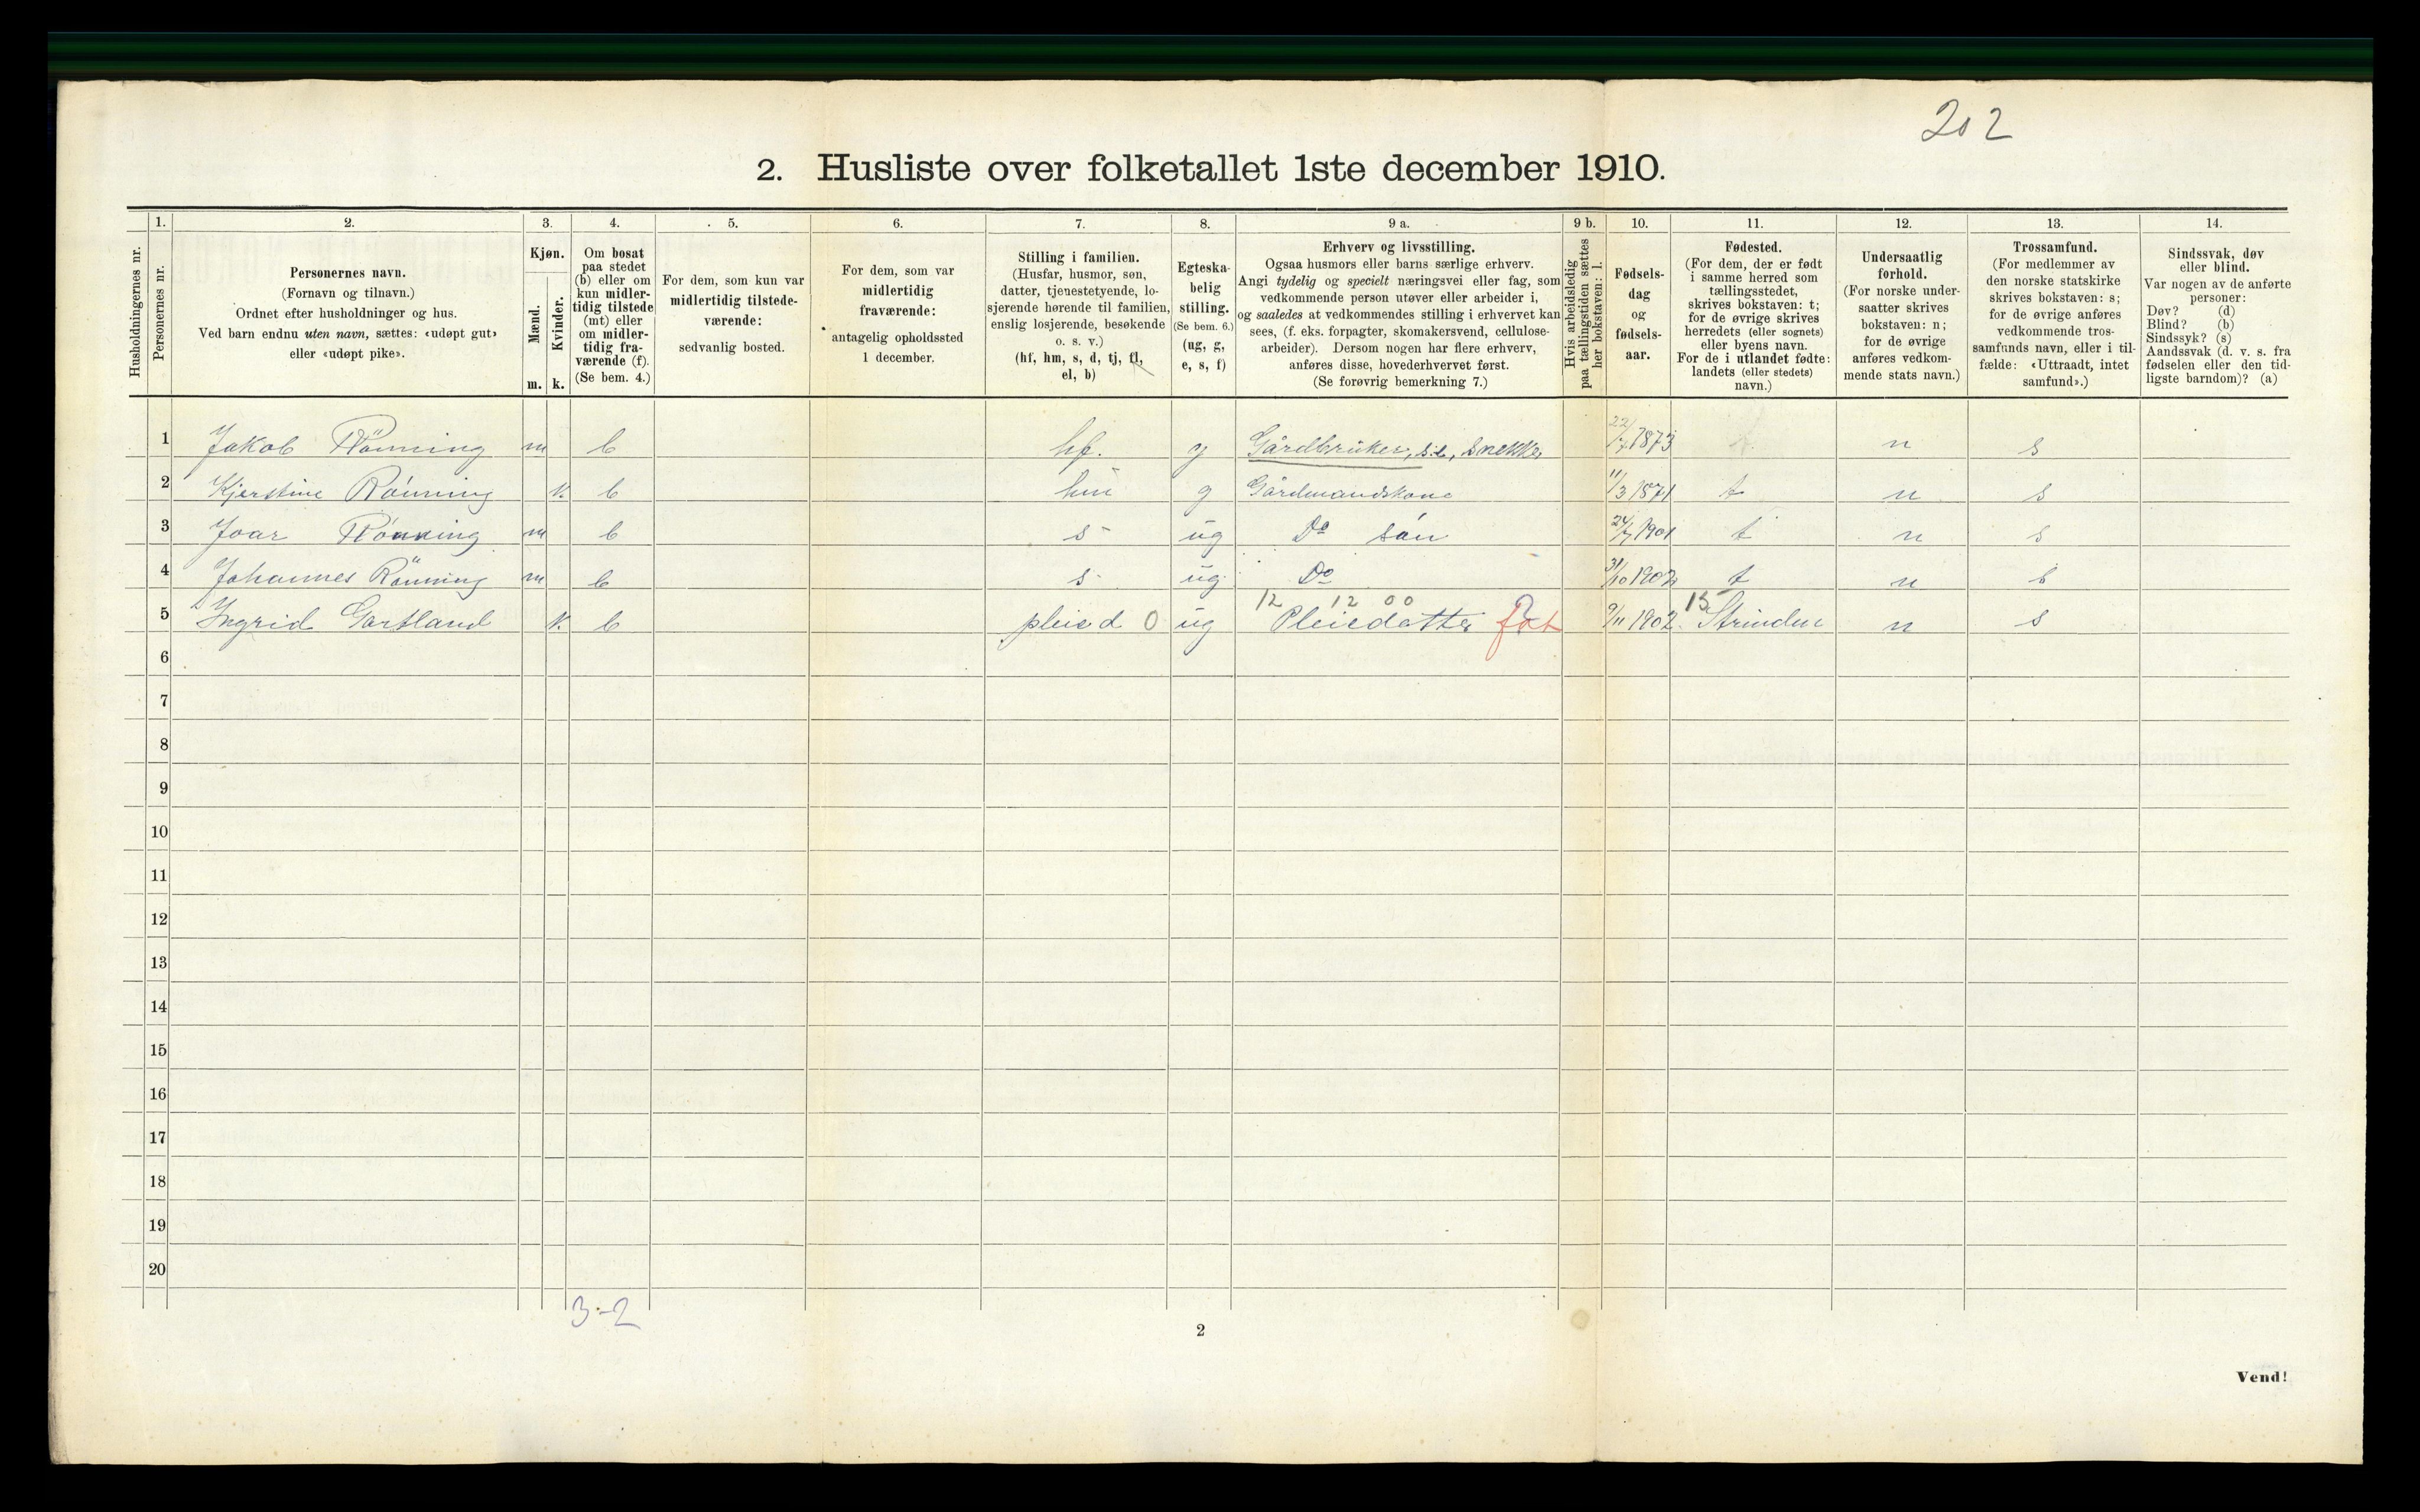 202
2. Husliste over folketallet 1ste december 1910.
1. 2. 3. 4. 5. 6. 7. 8. 9 a. 9 b. 10. 11. 12. 13. 14.
Husholdningernes nr.
Personernes nr.
Personernes navn.
(Fornavn og tilnavn.)
Ordnet efter husholdninger og hus.
Ved barn endnu uten navn, sættes: «udøpt gut»
eller «udøpt pike».
Kjøn.
Mænd.
Kvinder.
m. k.
Om bosat
paa stedet
(b) eller om
kun midler-
tidig tilstede
(mt) eller
om midler-
tidig fra-
værende (f).
(Se bem. 4.)
For dem, som kun var
midlertidig tilstede-
værende:
sedvanlig bosted.
For dem, som var
midlertidig
fraværende:
antagelig opholdssted
1 december.
Stilling i familien.
(Husfar, husmor, søn,
datter, tjenestetyende, lo-
sjerende hørende til familien,
enslig losjerende, besøkende
o. s. v.)
(hf, hm, s, d, tj, fl,
el, b)
Egteska-
belig
stilling.
(Se bem. 6.)
(ug, g,
e, s, f)
Erhverv og livsstilling.
Ogsaa husmors eller barns særlige erhverv.
Angi tydelig og specielt næringsvei eller fag, som
vedkommende person utøver eller arbeider i,
og saaledes at vedkommendes stilling i erhvervet kan
sees, (f. eks. forpagter, skomakersvend, cellulose-
arbeider). Dersom nogen har flere erhverv,
anføres disse, hovederhvervet først.
(Se forøvrig bemerkning 7.)
Hvis arbeidsledig
paa tællingstiden sættes
her bokstaven: l.
Fødsels-
dag
og
fødsels-
aar.
Fødested.
(For dem, der er født
i samme herred som
tællingsstedet,
skrives bokstaven: t;
for de øvrige skrives
herredets (eller sognets)
eller byens navn.
For de i utlandet fødte:
landets (eller stedets)
navn.)
Undersaatlig
forhold.
(For norske under-
saatter skrives
bokstaven: n;
for de øvrige
anføres vedkom-
mende stats navn.)
Trossamfund.
(For medlemmer av
den norske statskirke
skrives bokstaven: s;
for de øvrige anføres
vedkommende tros-
samfunds navn, eller i til-
fælde: «Uttraadt, intet
samfund».)
Sindssvak, døv
eller blind.
Var nogen av de anførte
personer:
Døv? (d)
Blind? (b)
Sindssyk? (s)
Aandssvak (d. v. s. fra
fødselen eller den tid-
ligste barndom)? (a)
1 Jakob Rönning m b hf. g Gårdbruker, s.e, Snekker 22/7 1873 n s
2 Kjerstine Rönning k. b hm g Gårdmandskone 11/3 1871 t n s
3 Joar Rönning m b s ug Do sön 24/7 1901 t n s
4 Johannes Rönning m b s ug Do 31/10 1902 t n s
12 12 00 15
5 Ingrid Gartland k. b pleied 0 ug Pleiedatter 9/11 1902 Strinden n s
6
7
8
9
10
11
12
13
14
15
16
17
18
19
20
3-2
2
Vend!